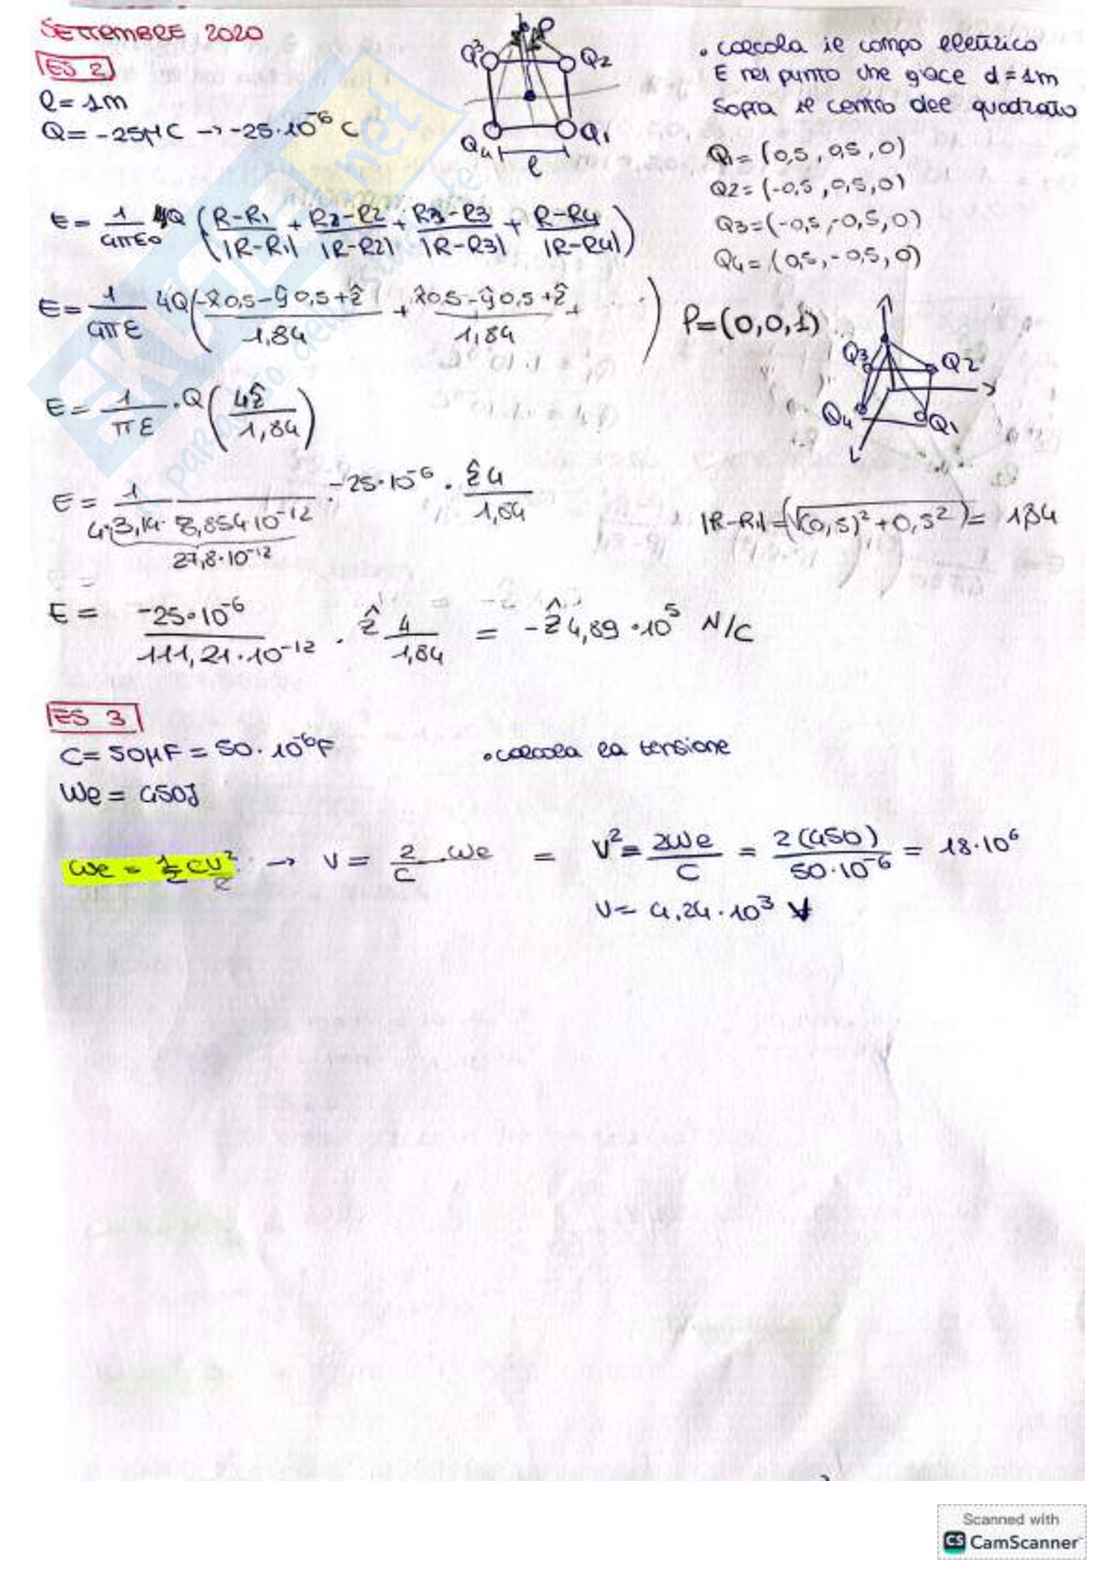 SETTEMBRE 2020
ES 2
l = 1m
Q = -25μC → -25·10⁻⁶ C
Q3 P Q2
Q4 Q1
l
• calcola il campo elettrico
E nel punto che giace d = 1m
sopra il centro del quadrato
Q1 = (0,5, 0,5, 0)
Q2 = (-0,5, 0,5, 0)
Q3 = (-0,5, -0,5, 0)
Q4 = (0,5, -0,5, 0)
E = 1/4πε0 4Q ( R-R1/|R-R1| + R2-R2/|R-R2| + R3-R3/|R-R3| + R-R4/|R-R4| )
E = 1/4πε 4Q ( -x̂0,5-ŷ0,5+ẑ/1,84 + x̂0,5-ŷ0,5+ẑ/1,84 + )
P = (0,0,1)
Q3 Q2
Q4 Q1
E = 1/πε · Q ( 4ẑ/1,84 )
E = 1/4·3,14·8,854·10⁻¹² · -25·10⁻⁶ · ẑ4/1,84
27,8·10⁻¹²
|R-R1| = (√(0,5)²+0,5²) = 1,84
=
E = -25·10⁻⁶/111,21·10⁻¹² · ẑ 4/1,84 = -ẑ4,89·10⁵ N/C
ES 3
C = 50μF = 50·10⁻⁶F
• calcola la tensione
We = 450J
We = 1/2 CV² → V = 2/C We = V² = 2We/C = 2(450)/50·10⁻⁶ = 18·10⁶
V = 4.24·10³ V
Scanned with
CS CamScanner